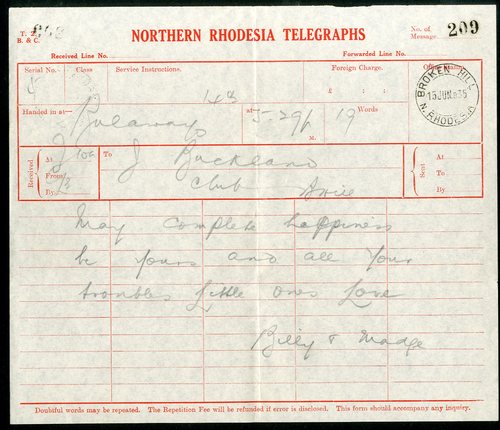 T. 2
B. & C.
NORTHERN RHODESIA TELEGRAPHS
No. of Message
209
Received Line No.
Forwarded Line No.
Serial No.
Class
Service Instructions.
Foreign Charge.
Office Stamp
143
£ : :
BROKEN HILL
13 JUN 35
N. RHODESIA
Handed in at—
Bulawayo
at—
5-29p
M.
19
Words
Received
At
From
By
To
J Buckland
Club
Sent
At
To
By
May complete happiness
be yours and all your
troubles little ones Love
Billy & Madge
Doubtful words may be repeated. The Repetition Fee will be refunded if error is disclosed. This form should accompany any inquiry.